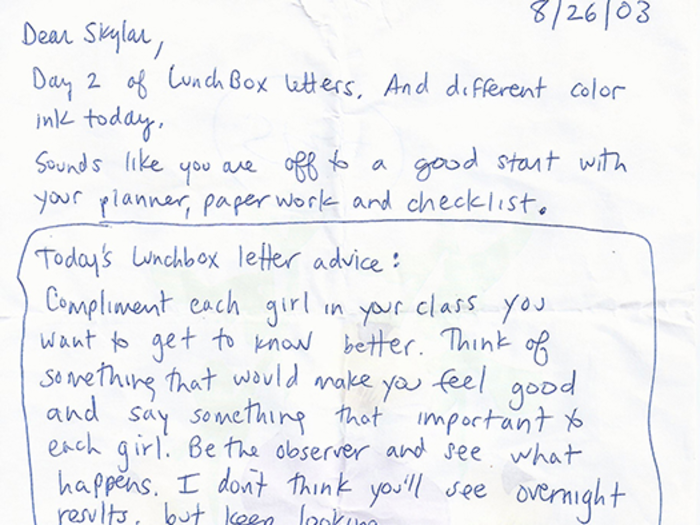 8/26/03
Dear Skylar,
Day 2 of LunchBox letters. And different color
ink today.
Sounds like you are off to a good start with
your planner, paperwork and checklist.
Today's lunchbox letter advice:
Compliment each girl in your class you
want to get to know better. Think of
something that would make you feel good
and say something that important to
each girl. Be the observer and see what
happens. I don't think you'll see overnight
results, but keep looking